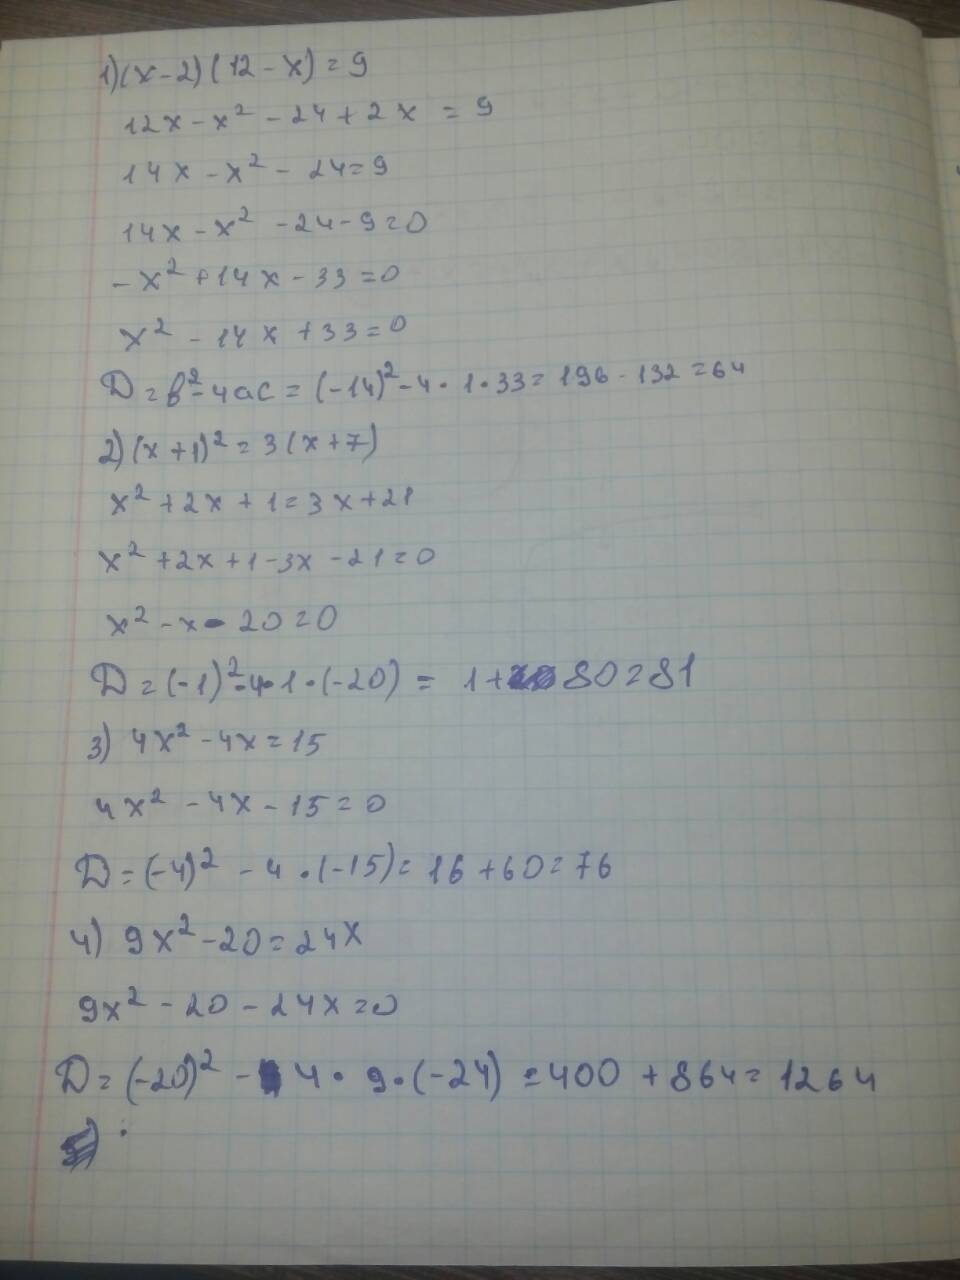 1) (x-2)(12-x)=9
12x-x²-24+2x=9
14x-x²-24=9
14x-x²-24-9=0
-x²+14x-33=0
x²-14x+33=0
D=b²-4ac=(-14)²-4·1·33=196-132=64
2) (x+1)²=3(x+7)
x²+2x+1=3x+21
x²+2x+1-3x-21=0
x²-x-20=0
D=(-1)²-4·1·(-20)=1+80=81
3) 4x²-4x=15
4x²-4x-15=0
D=(-4)²-4·(-15)=16+60=76
4) 9x²-20=24x
9x²-20-24x=0
D=(-20)²-4·9·(-24)=400+864=1264